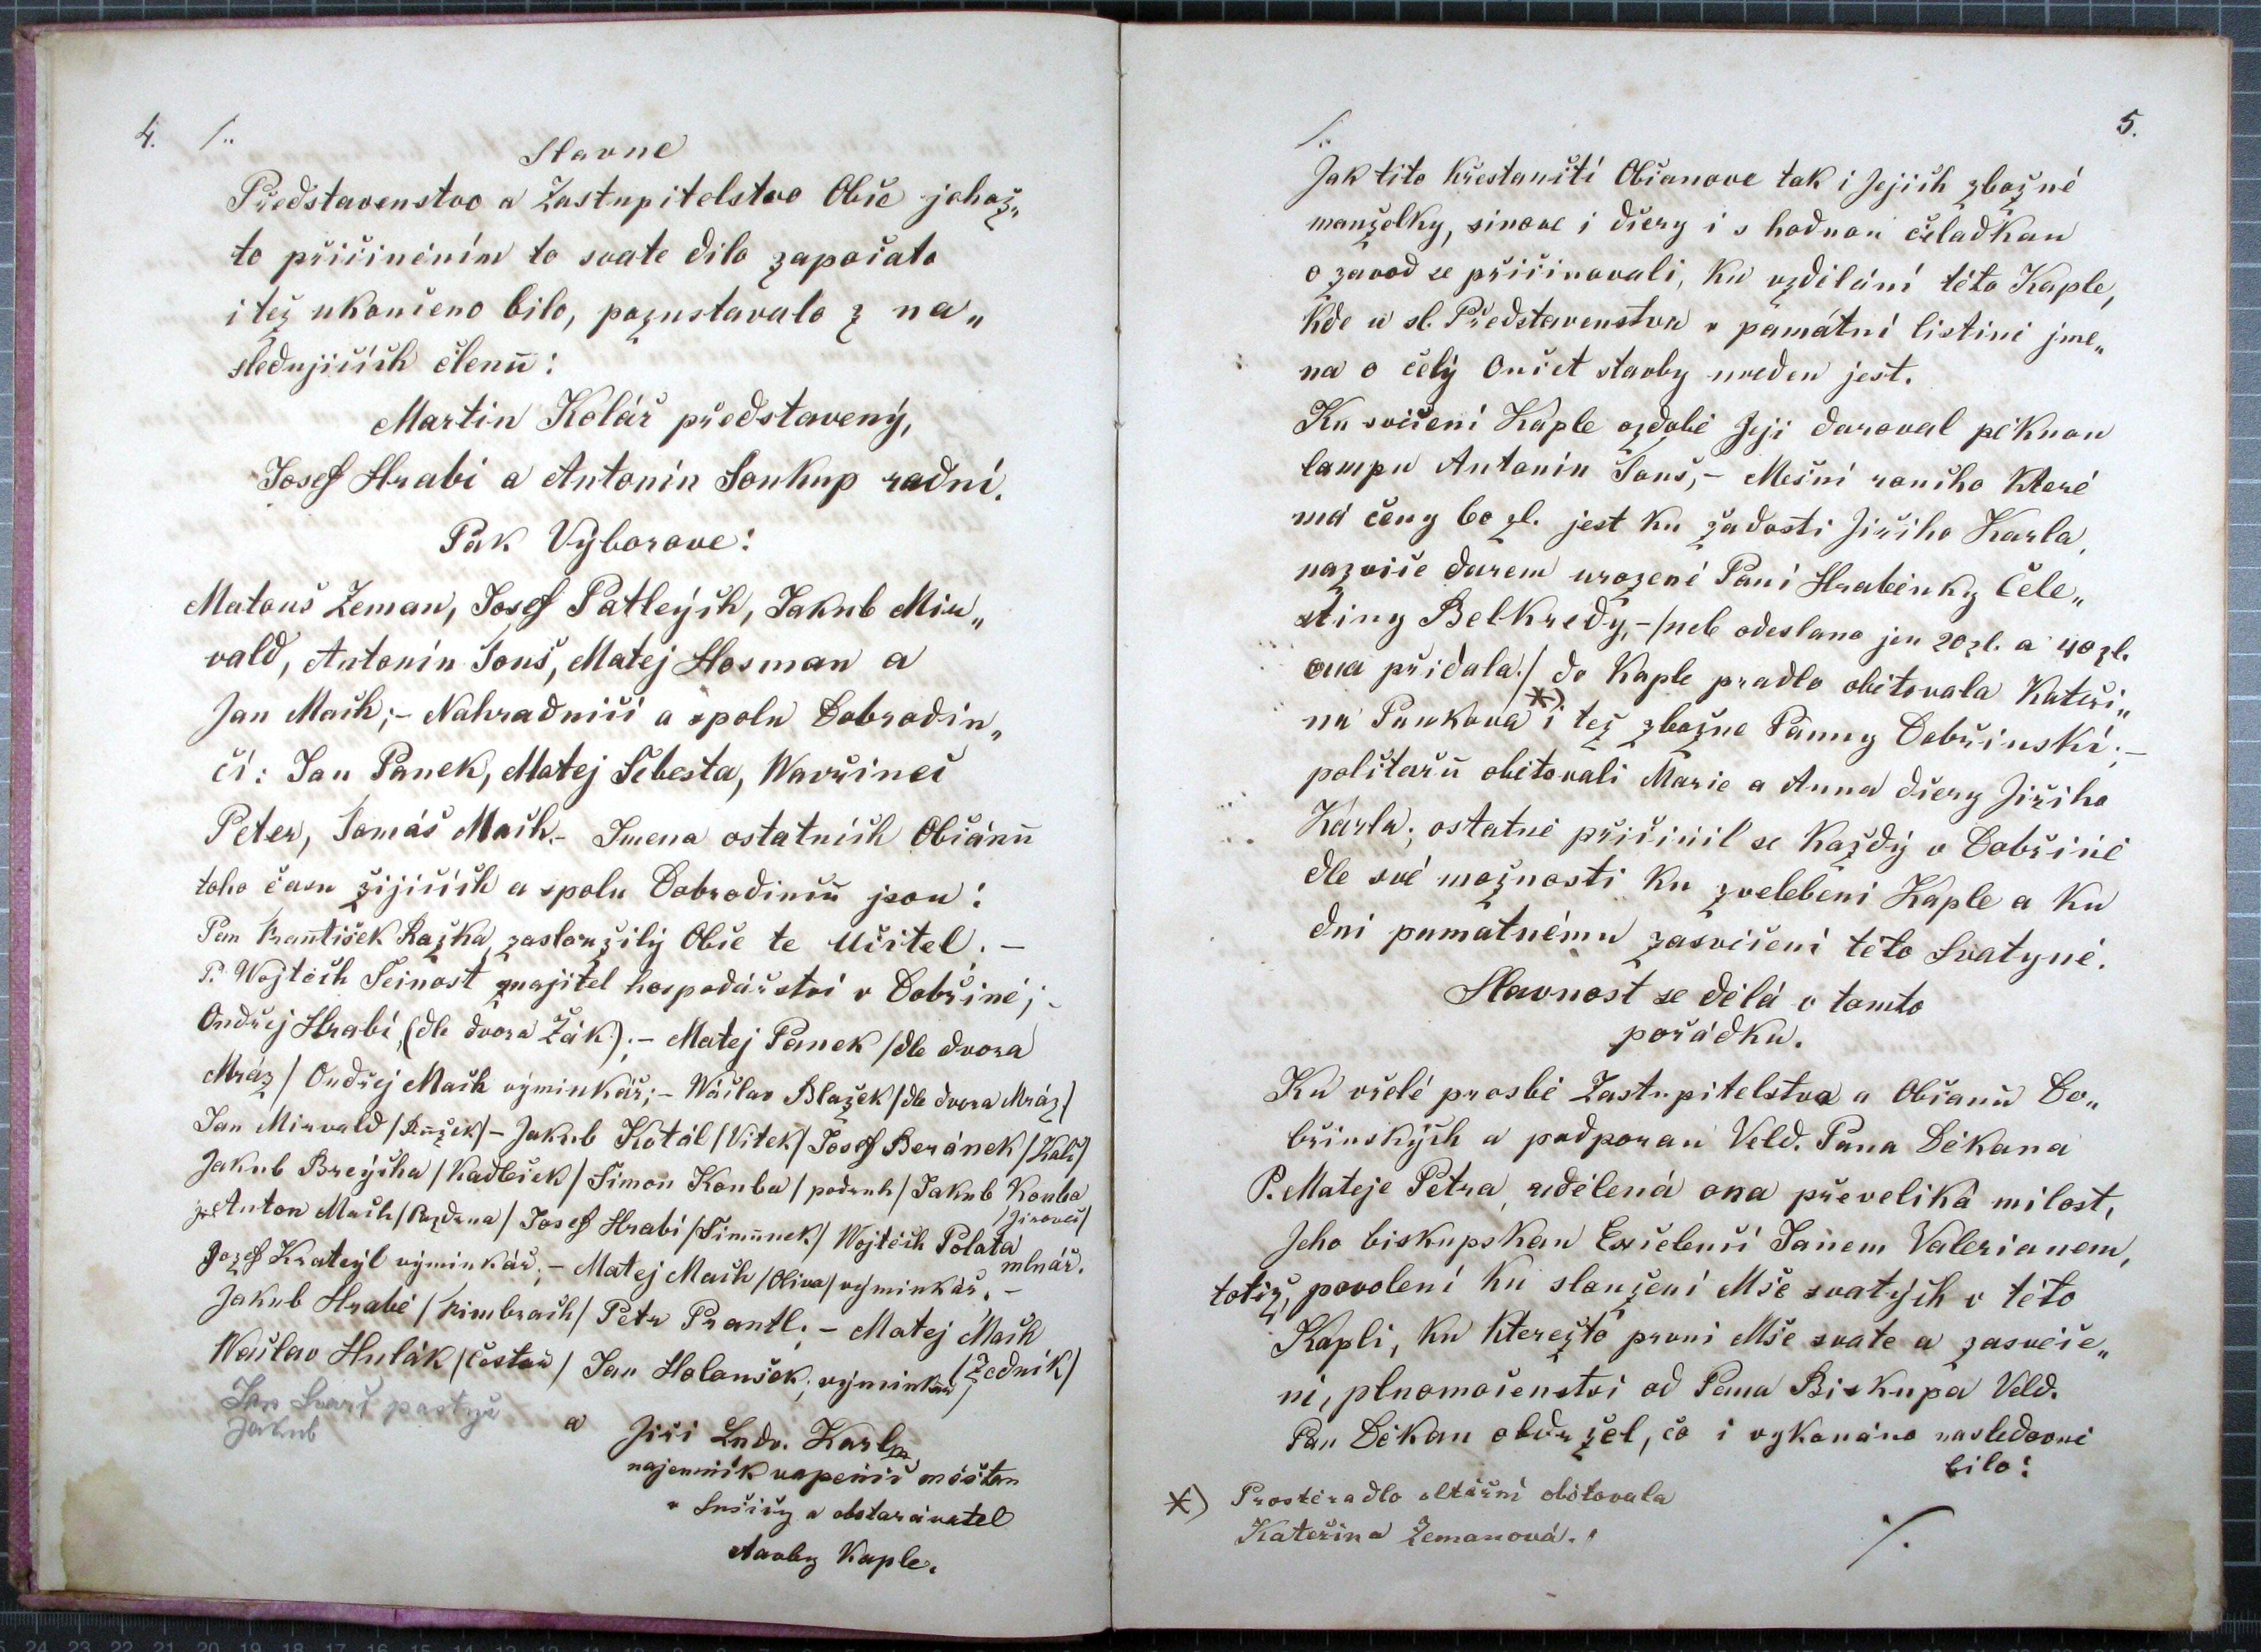 4. /..
Slavne
Představenstvo a Zastupitelstvo Obče jehož„
to přičiněním to svate dilo započato
i též ukončeno bilo, pozustavalo z na„
sledujičích členů:
Martin Kolář představený,
Josef Hrabi a Antonin Soukup radní.
Pak Výborove:
Matouš Zeman, Josef Patleých, Jakub Mir„
vald, Antonín Touš, Matej Hosman a
Jan Mach;- Nahradniči a spolu Dobrodin„
čí: Jan Panek, Matej Šebesta, Wavřineč
Peter, Tomáš Mach.- Jmena ostatních Občánů
toho času žijičích a spolu Dobrodinčů jsou:
Pan František Kažka, zasloužilý Obče te Učitel. -
P. Wojtěch Šeinost majitel hospodářstvi v Dobřině; -
Ondřej Hrabí, (dle dvora Žák); - Matej Panek /dle dvora
Mráz/ Ondřej Mach výminkář; - Wáčlav Blažek /dle dvora Mráz/
Jan Mirvald /Ružek/ - Jakub Kotál /Vitek/ Josef Beránek /Kalč/
Jakub Breýcha /Kadleček/ Šimon Kouba /podruh/ Jakub Kouba
/Jiroveč/
Anton Mach /Pazdrna/ Josef Hrabí /Šimůnek/ Wojtěch Polata
mlnář.
Jozef Krateýl výminkář. - Matej Mach /Oliva/ výminkář. -
Jakub Hrabě / Petr Prantl. - Matej Mach
/Zedník/
Wáčlav Hulák /Čestař/ Jan Holoušek, výminkář
Jan Švarč pastýř
Jakub
a Jiří Ludv. Karl
najemník vapenič měštan
v Sušičy a obstaravatel
stavby Kaple.
5.
/..
Jak tito křestanští Občanove tak i Jejich zbožné
manželky, sinove i dčery i s hodnou čeladkau
o zavod se přičinovali, ku vzdělání této Kaple,
kde u sl. Představenstva v památní listini jme„
na o čelý Oučet stavby uveden jest.
Ku svíčení Kaple ozdobě Jeji daroval pěknou
lampu Antonin Touš, - Mešní roucho které
má čeny 60 zl. jest ku žadosti Jiřiho Karla,
nazviče darem urozené Paní Hraběnky Čele„
stiny Belkredy, - /neb odeslano jen 20 zl. a 40 zl.
ona přidala./ do Kaple pradlo obětovala Kateři„
na Pankova *) i též zbožne Panny Dobřinski; -
polštařů obětovali Marie a Anna dčery Jiřiho
Kárla; ostatně přičinil se každý v Dobřině
dle své možnosti ku zvelebení Kaple a ku
dni pamatnému zasvěčení této Svatyně.
Slavnost se dělá v tomto
pořádku.
Ku vřelé prosbě Zastupitelstva a Občanů Do„
břinských a podporau Veld. Pana Děkana
P. Mateje Petra, udělená ona převeliká milost,
Jeho biskupskau Exčelenčí Janem Valerianem,
totiž, povolení ku sloužení Mše svatých v této
Kapli, ku kterežto prvni Mše svate a zasvěče„
ni, plnomočenstvi od Pana Biskupa Veld.
Pan Děkan obdržel, čo i vykonáno nasledovně
bilo:
*) Prostěradlo oltářní obětovala
Kateřina Zemanová.
/.